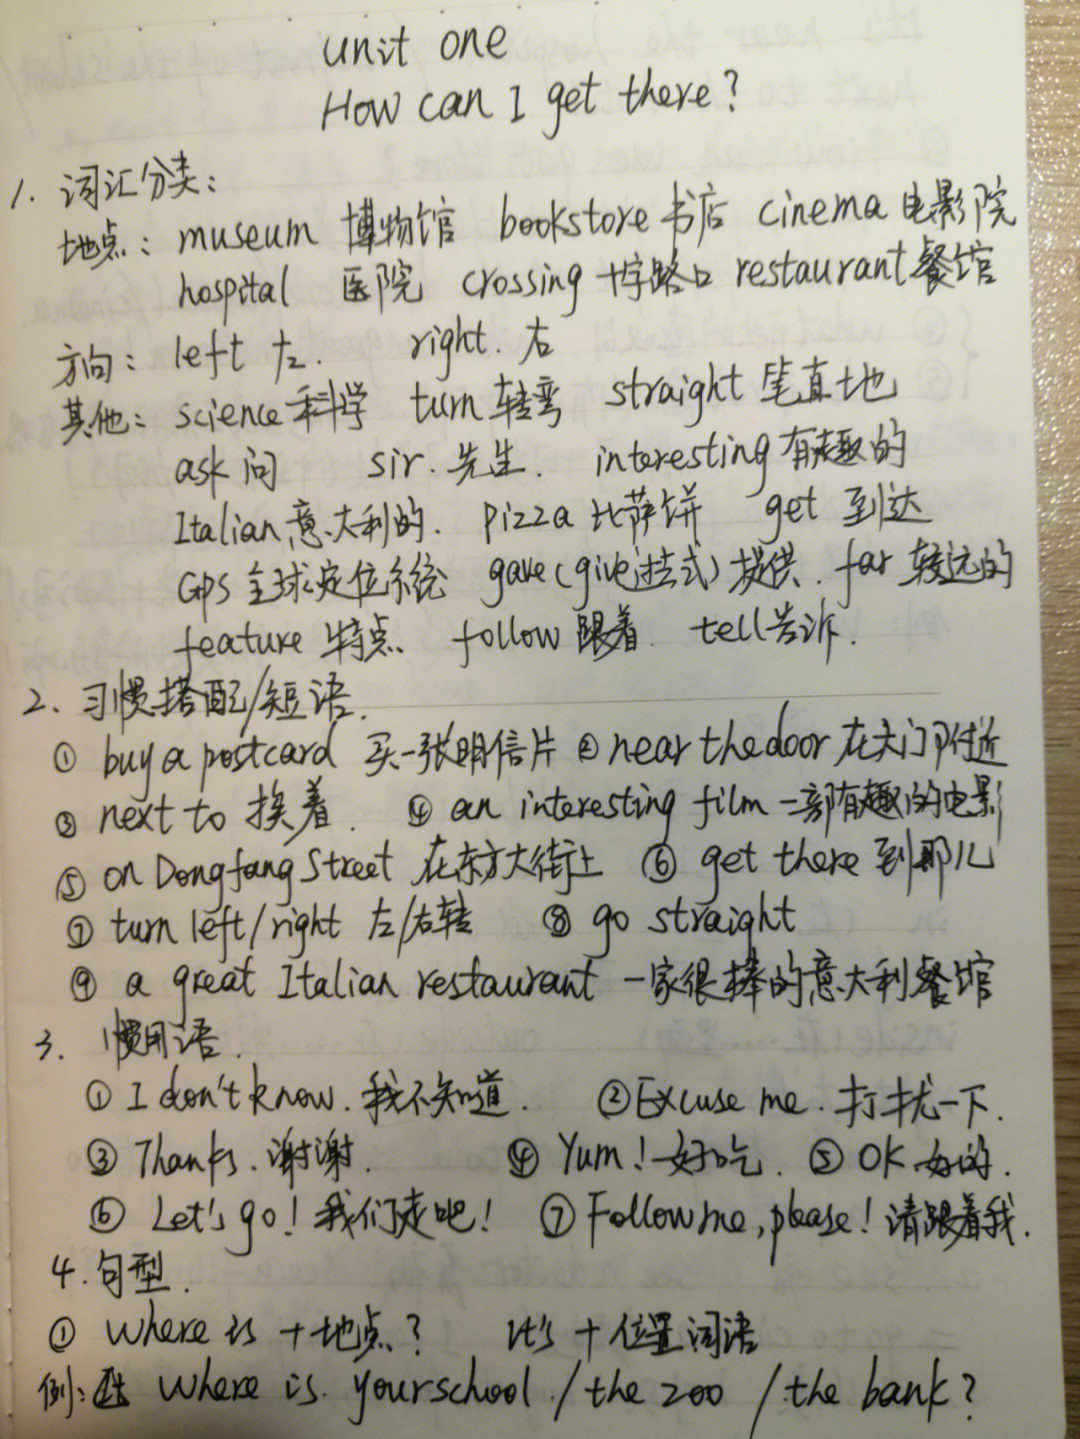 unit one
How can I get there?
1. 词汇分类:
地点: museum 博物馆 bookstore 书店 cinema 电影院
hospital 医院 crossing 十字路口 restaurant 餐馆
方向: left 左. right. 右
其他: science 科学 turn 转弯 straight 笔直地
ask 问 sir. 先生. interesting 有趣的
Italian 意大利的. pizza 比萨饼 get 到达
GPS 全球定位系统 gave(give过去式) 提供. far 较远的
feature 特点 follow 跟着. tell 告诉.
2、习惯搭配/短语.
① buy a postcard 买一张明信片 ② near the door 在大门附近
③ next to 挨着. ④ an interesting film 一部有趣的电影
⑤ on Dongfang Street 在东方大街上 ⑥ get there 到那儿
⑦ turn left/right 左/右转 ⑧ go straight
⑨ a great Italian restaurant 一家很棒的意大利餐馆
3. 惯用语.
① I don't know. 我不知道. ② Excuse me. 打扰一下.
③ Thanks. 谢谢. ④ Yum! 好吃. ⑤ OK 好的.
⑥ Let's go! 我们走吧! ⑦ Follow me, please! 请跟着我.
4. 句型.
① Where is + 地点? It's + 位置词语
例: Where is your school / the zoo / the bank?